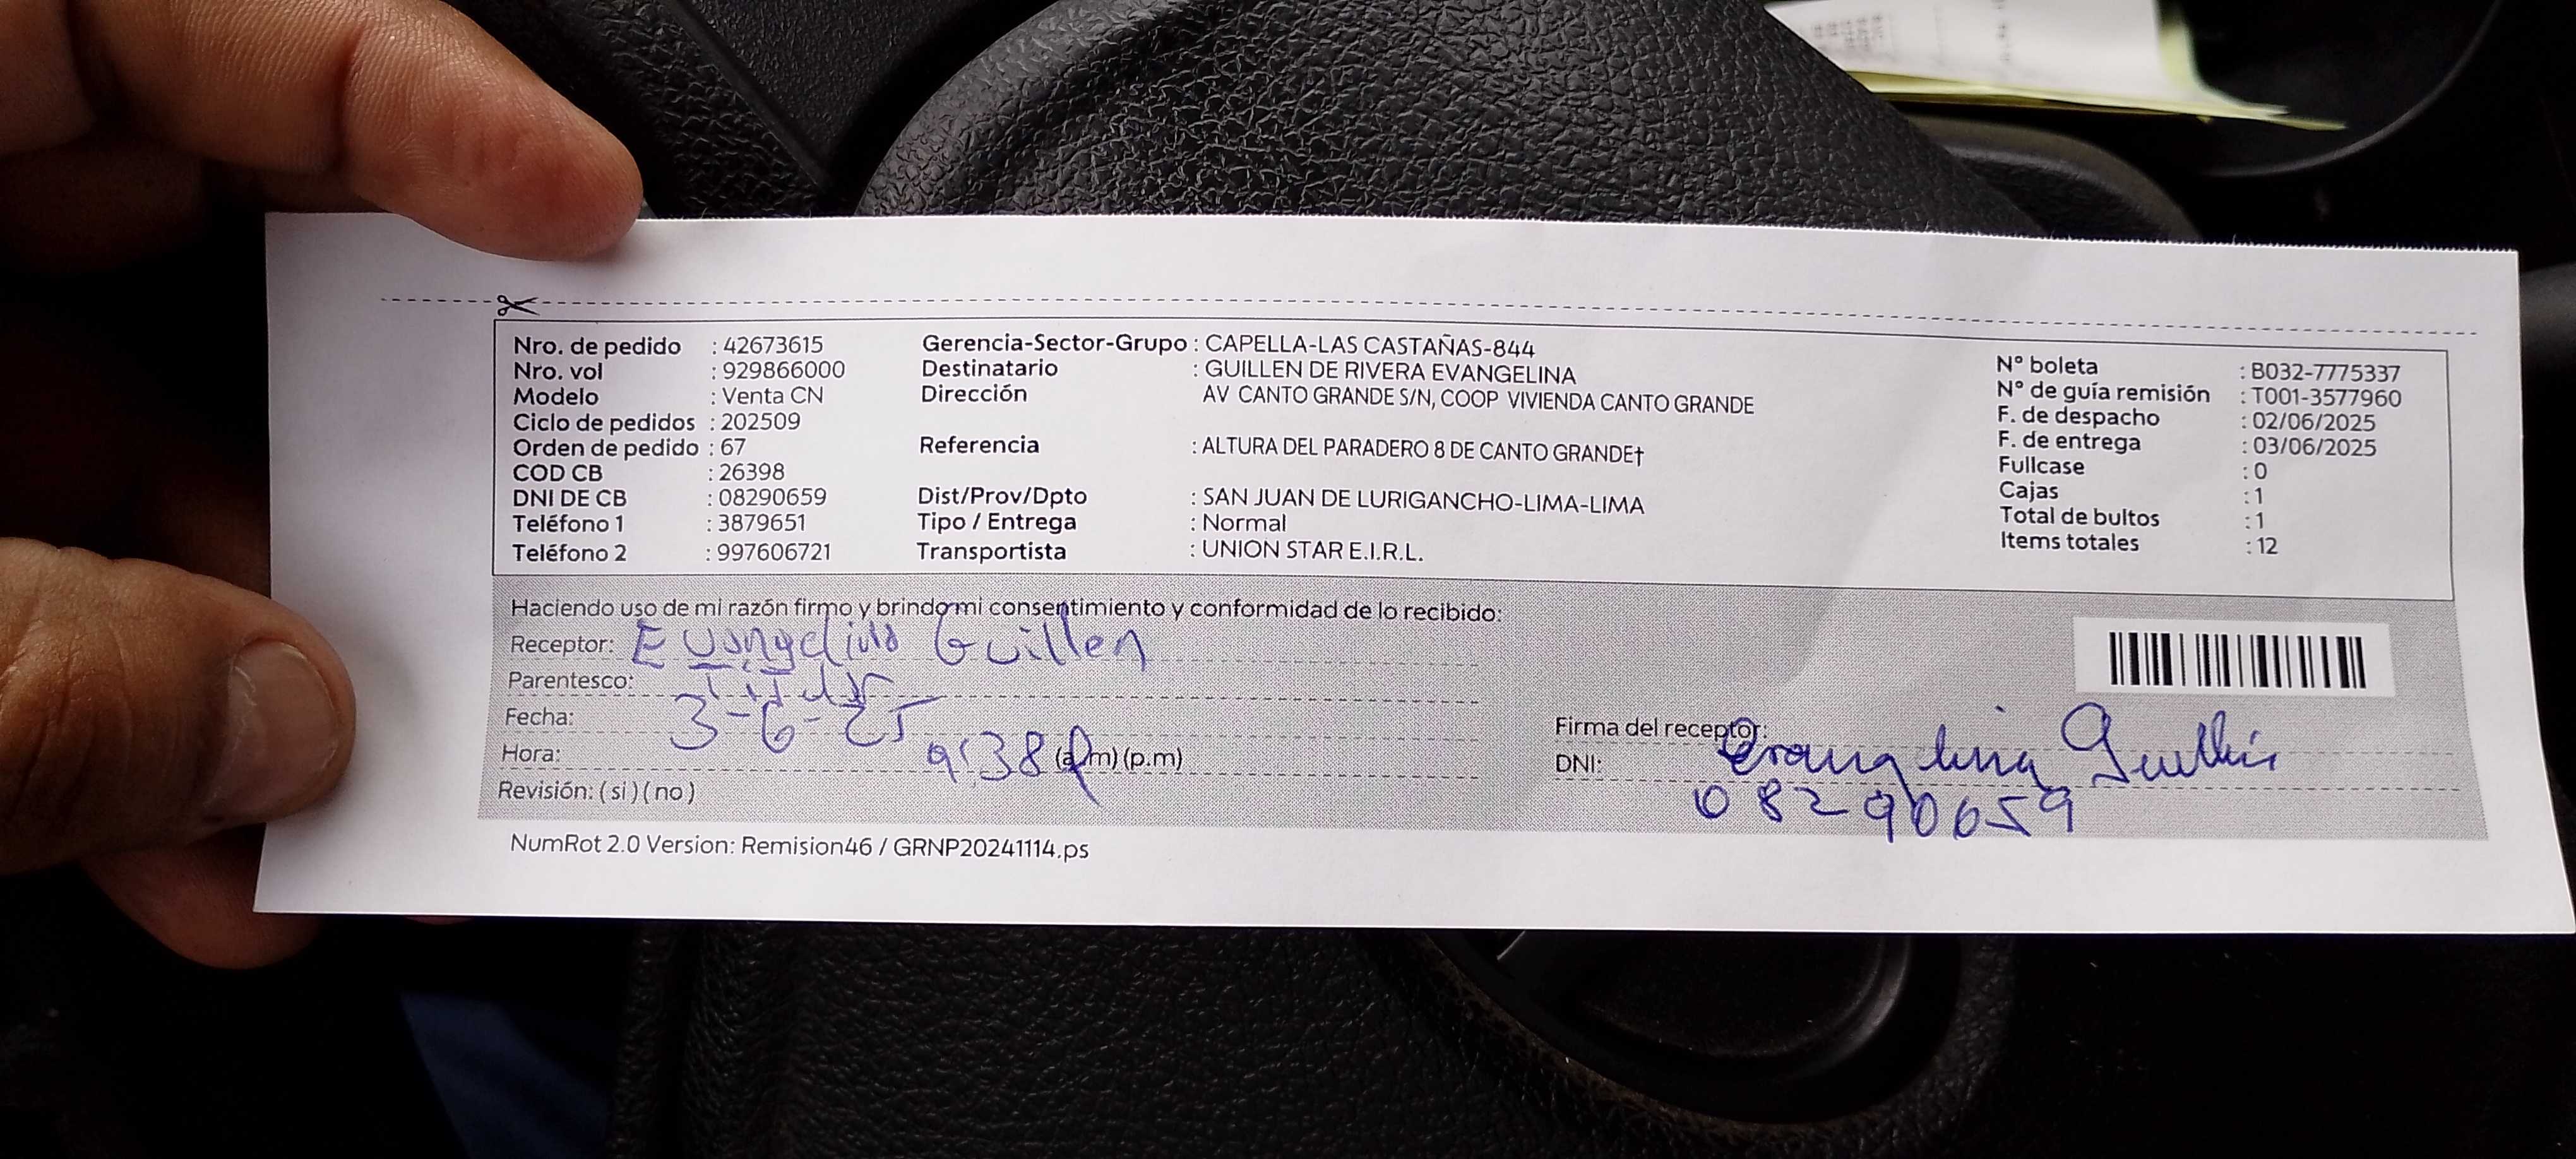 Nro. de pedido : 42673615
Nro. vol : 929866000
Modelo : Venta CN
Ciclo de pedidos : 202509
Orden de pedido : 67
COD CB : 26398
DNI DE CB : 08290659
Teléfono 1 : 3879651
Teléfono 2 : 997606721
Gerencia-Sector-Grupo : CAPELLA-LAS CASTAÑAS-844
Destinatario : GUILLEN DE RIVERA EVANGELINA
Dirección AV CANTO GRANDE S/N, COOP VIVIENDA CANTO GRANDE
Referencia : ALTURA DEL PARADERO 8 DE CANTO GRANDE†
Dist/Prov/Dpto : SAN JUAN DE LURIGANCHO-LIMA-LIMA
Tipo / Entrega : Normal
Transportista : UNION STAR E.I.R.L.
N° boleta : B032-7775337
N° de guía remisión : T001-3577960
F. de despacho : 02/06/2025
F. de entrega : 03/06/2025
Fullcase : 0
Cajas : 1
Total de bultos : 1
Items totales : 12
Haciendo uso de mi razón firmo y brindo mi consentimiento y conformidad de lo recibido:
Receptor: Evangelina Guillen
Parentesco: Titular
Fecha: 3-6-25
Hora: 9:38 (a.m) (p.m)
Revisión: ( si ) ( no )
Firma del receptor: Evangelina Guillén
DNI: 08290659
NumRot 2.0 Version: Remision46 / GRNP20241114.ps